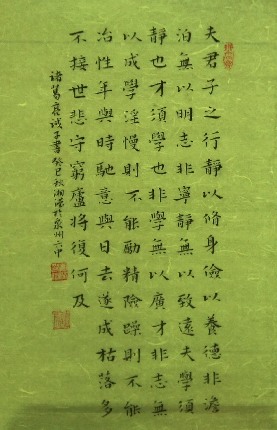 夫君子之行靜以脩身儉以養德非澹
泊無以明志非寧靜無以致遠夫學須
靜也才須學也非學無以廣才非志無
以成學淫慢則不能勵精險躁則不能
冶性年與時馳意與日去遂成枯落多
不接世悲守窮廬將復何及
諸葛亮誡子書癸巳秋湘浩於泉州六中